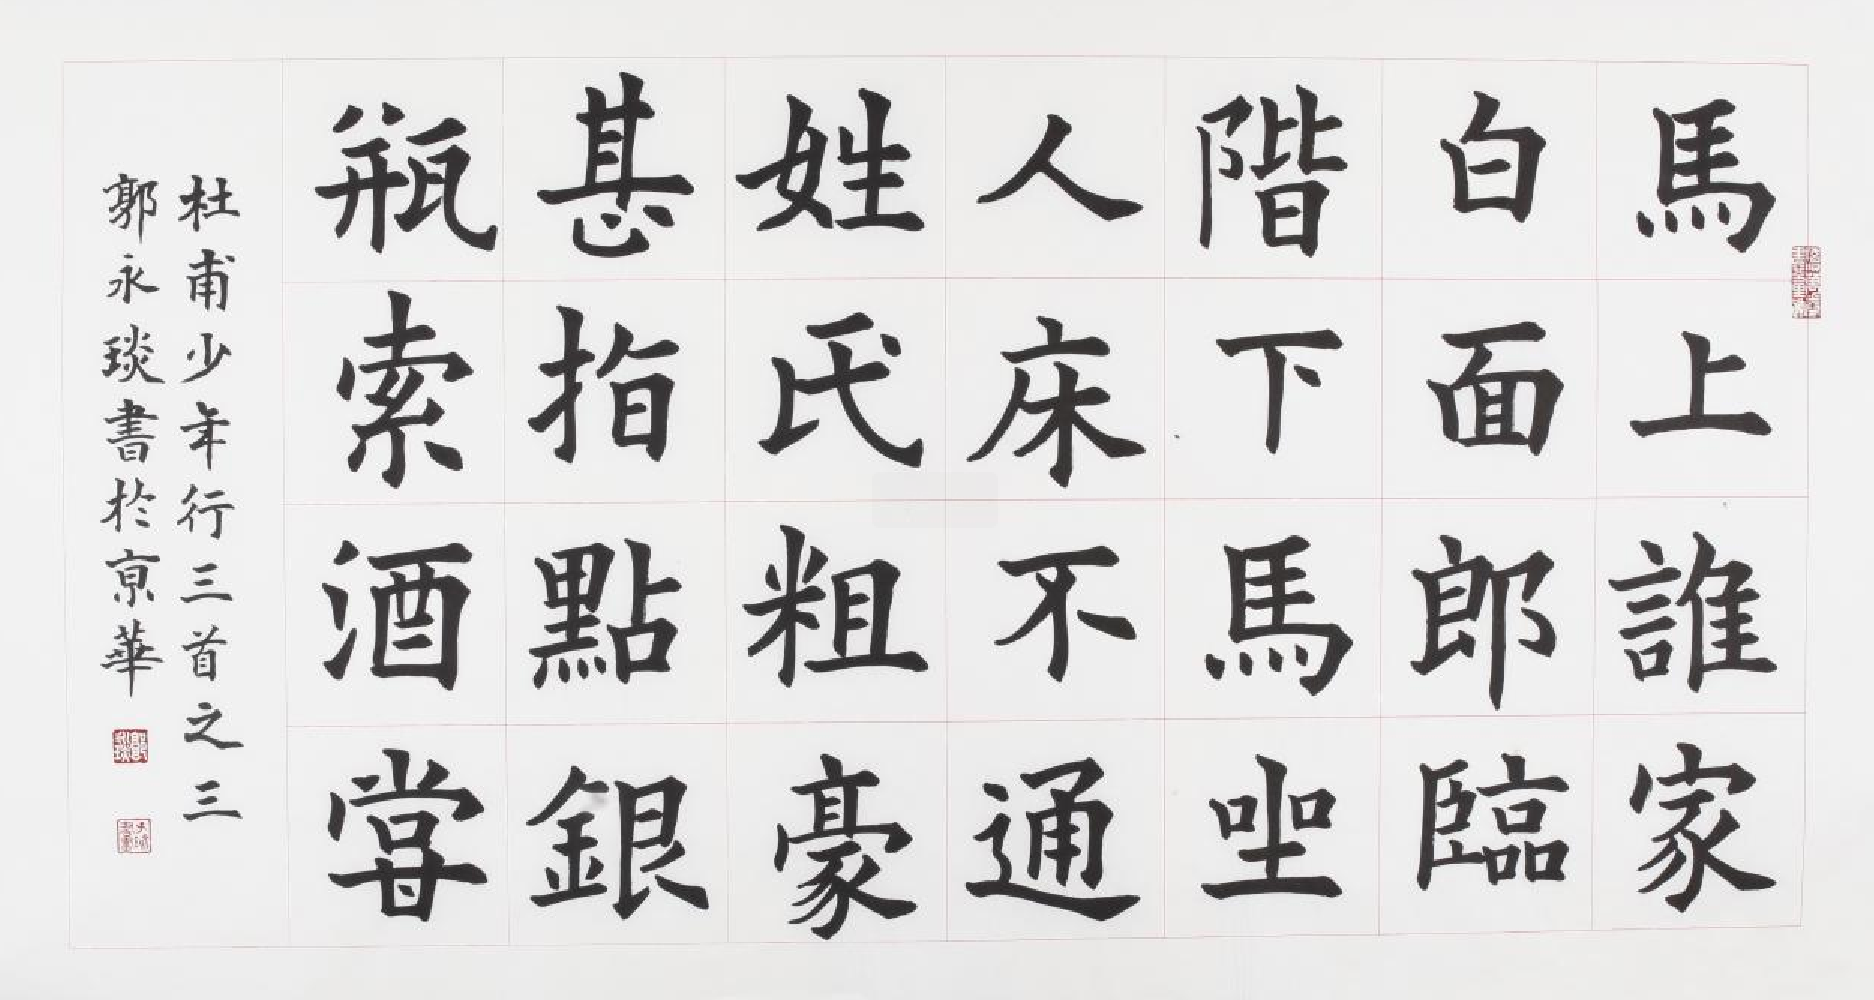 馬上誰家
白面郎臨
階下馬坐
人床不通
姓氏粗豪
甚指點銀
瓶索酒甞
杜甫少年行三首之三
郭永琰書於京華